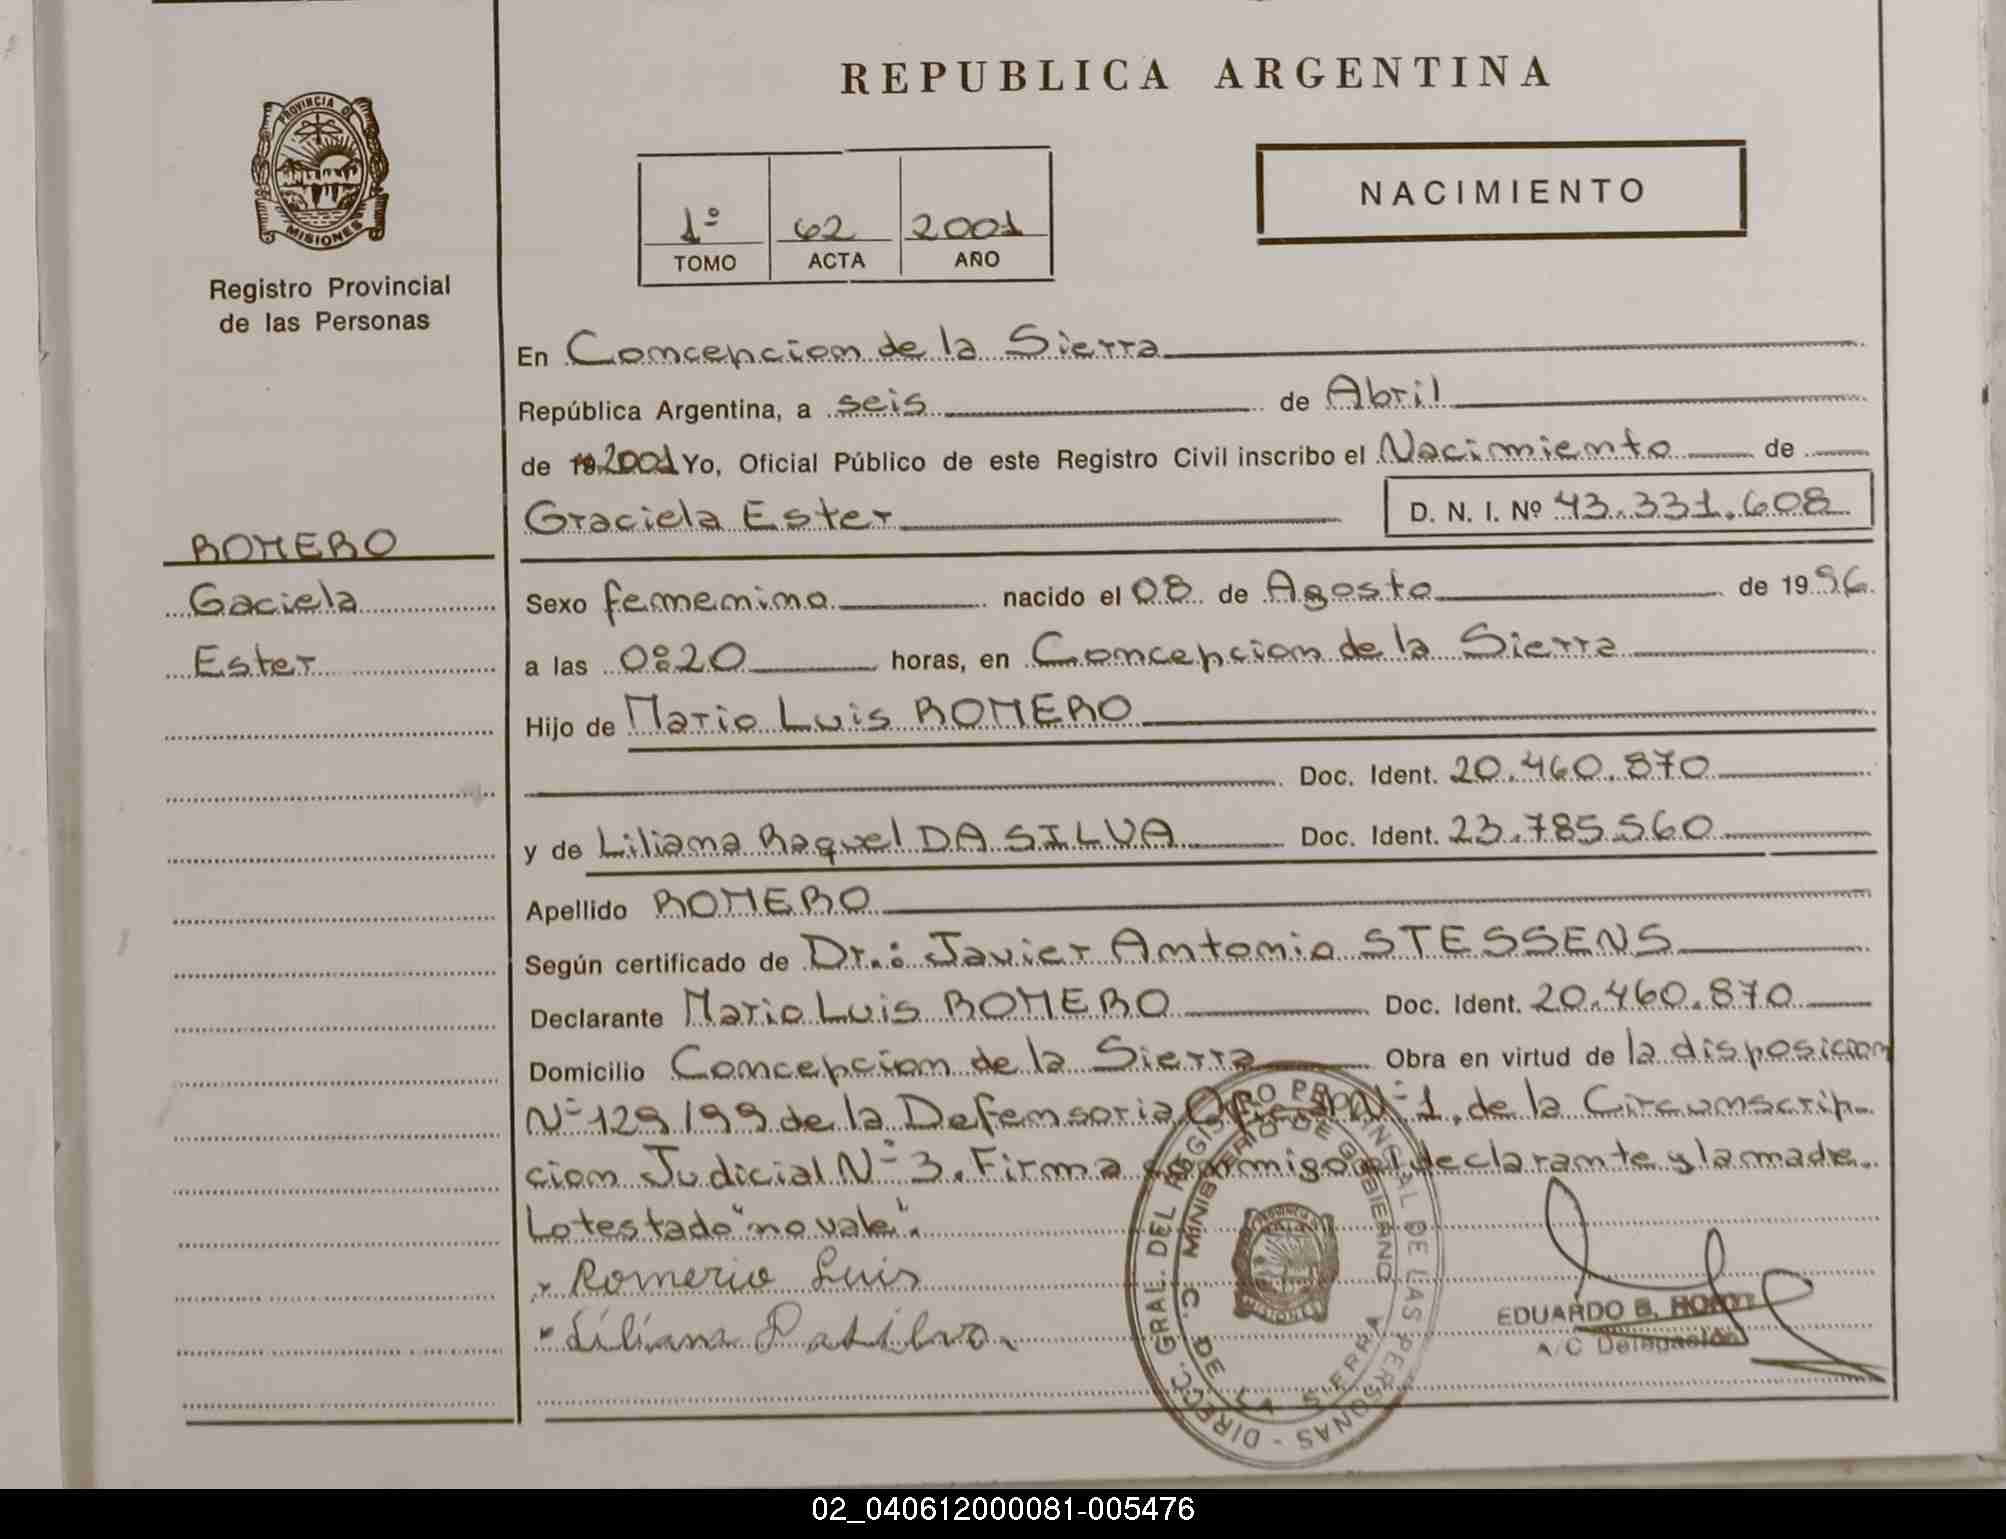 REPUBLICA ARGENTINA
PROVINCIA DE
MISIONES
Registro Provincial
de las Personas
1º 62 2001
TOMO ACTA AÑO
NACIMIENTO
En Concepcion de la Sierra
República Argentina, a seis de Abril
de 19 2001 Yo, Oficial Público de este Registro Civil inscribo el Nacimiento de
Graciela Ester D. N. I. Nº 43.331.608
ROMERO
Gaciela
Ester
Sexo femenino nacido el 08 de Agosto de 1996
a las 0:20 horas, en Concepcion de la Sierra
Hijo de Mario Luis ROMERO
Doc. Ident. 20.460.870
y de Liliana Raquel DA SILVA Doc. Ident. 23.785.560
Apellido ROMERO
Según certificado de Dr.: Javier Antonio STESSENS
Declarante Mario Luis ROMERO Doc. Ident. 20.460.870
Domicilio Concepcion de la Sierra Obra en virtud de la disposicion
Nº 129/99 de la Defensoria Oficial Nº 1, de la Circunscrip-
cion Judicial Nº 3. Firma conmigo el declarante y la madre.
Lo testado "no vale".
Romerio Luis
Liliana Dasilva.
DIRECC. GRAL. DEL REGISTRO PROVINCIAL DE LAS PERSONAS
MINISTERIO DE GOBIERNO
C. DE LA SIERRA
MISIONES
EDUARDO B.
A/C Delegación
02_040612000081-005476